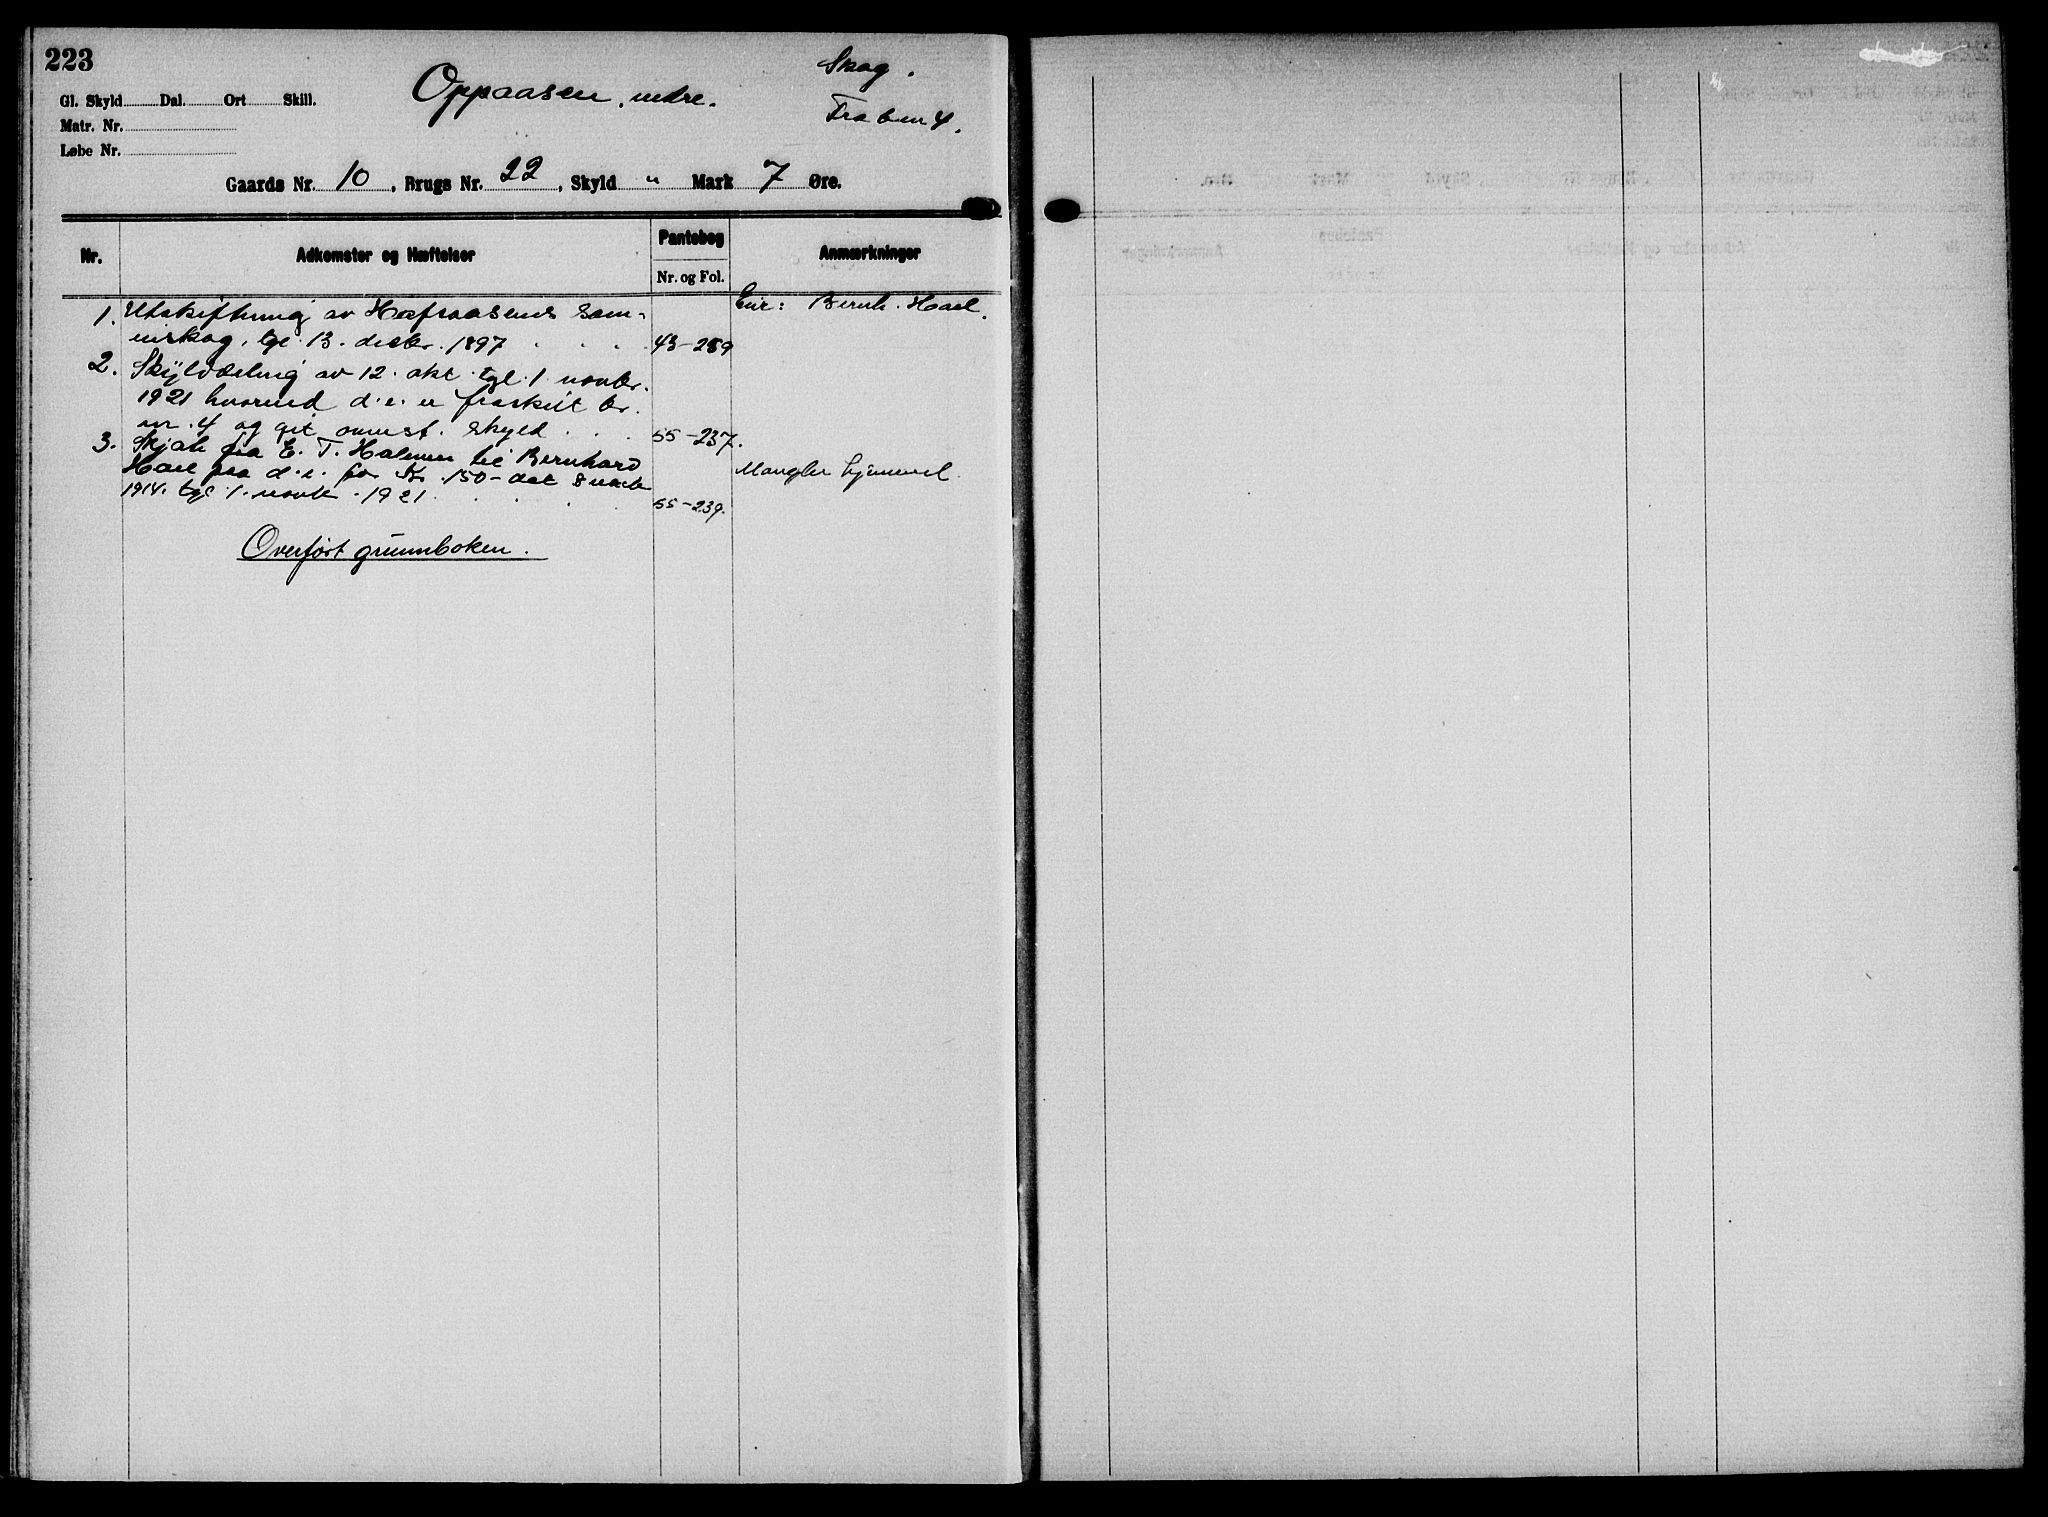 223
Skog.
Oppaasen, indre.
Fra bnr 4.
Gl. Skyld Dal. Ort Skill.
Matr. Nr.
Løbe Nr.
Gaards Nr. 10, Brugs Nr. 22, Skyld " Mark 7 Øre.
Nr. Adkomster og Hæftelser Pantebog Anmærkninger
Nr. og Fol.
Eier: Bernh. Hael.
1. Utskiftning av Hofsaasens sam-
eieskog, tgl. 13. decbr. 1897 43-289
2. Skylddeling av 12. okt. tgl. 1. novbr.
1921 hvorved d. e. er fraskilt br.
nr. 4 og git ovenst. skyld 55-237.
3. Skjøte fra E. T. Halmen til Bernhard
Hael paa d. e. for Kr. 150- dat 8 novbr Mangler hjemmel.
1914. tgl. 1. novbr. 1921 55-239.
Overført grunnboken.